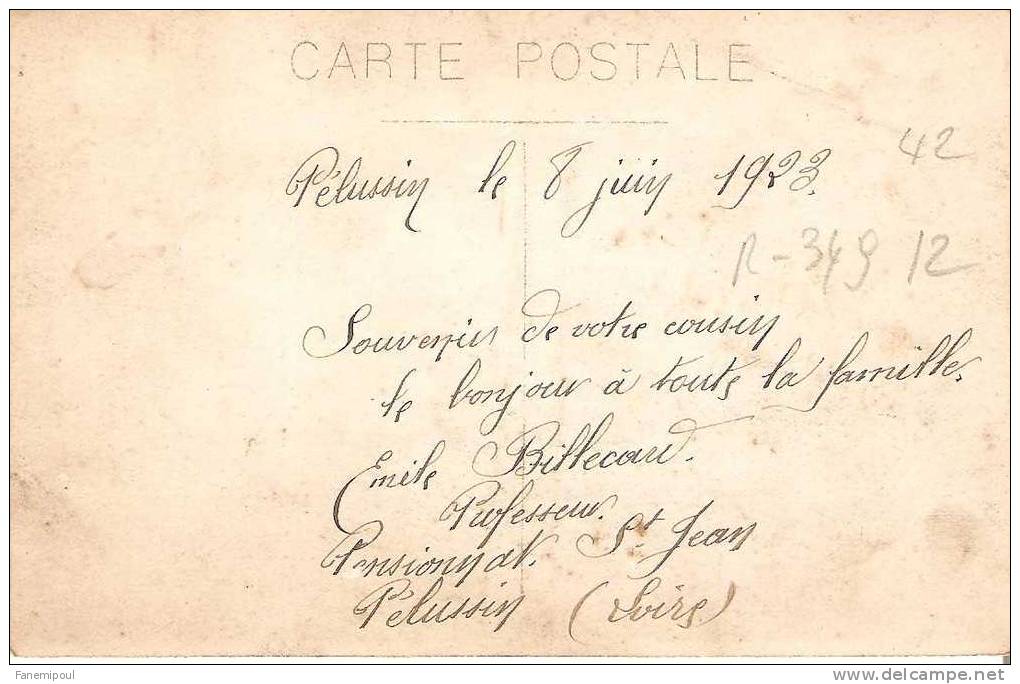 CARTE POSTALE
Pélussin le 8 juin 1923.
42
R-349 12
Souvenir de votre cousin
le bonjour à toute la famille.
Emile Billecard.
Professeur.
Pensionnat. St. Jean
Pélussin (Loire)
Fanemipoul
www.delcampe.net